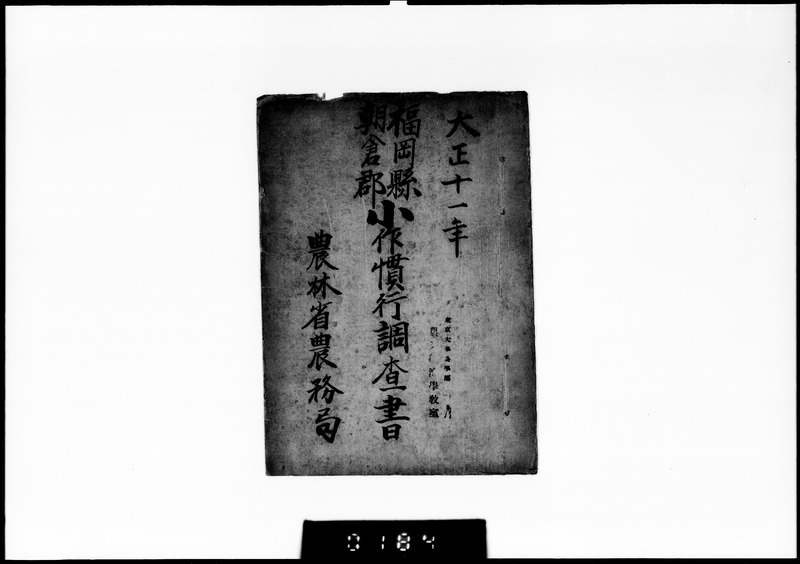 大正十一年
福岡縣
朝倉郡
小作慣行調査書
農林省農務局
東京大學農學部
學教室
0184